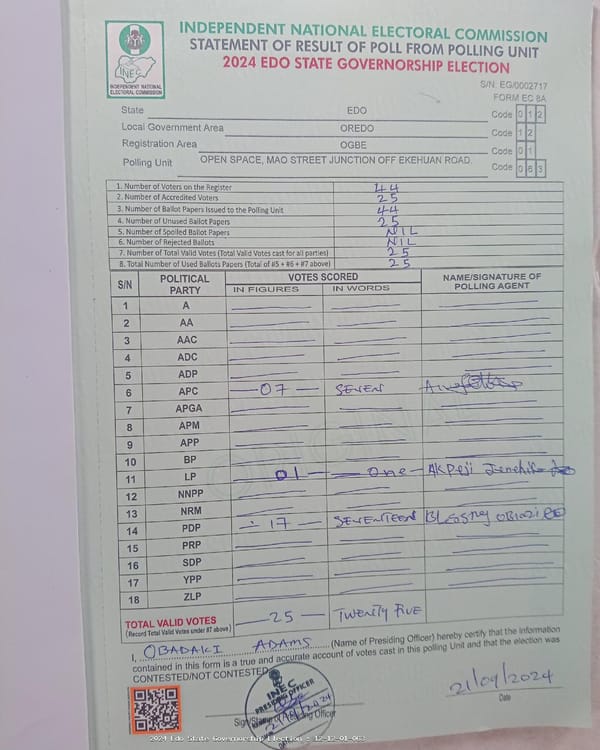 INDEPENDENT NATIONAL ELECTORAL COMMISSION
STATEMENT OF RESULT OF POLL FROM POLLING UNIT
2024 EDO STATE GOVERNORSHIP ELECTION
INEC
INDEPENDENT NATIONAL ELECTORAL COMMISSION
S/N. EG/0002717
FORM EC 8A
State EDO Code 0 1 2
Local Government Area OREDO Code 1 2
Registration Area OGBE Code 0 1
Polling Unit OPEN SPACE, MAO STREET JUNCTION OFF EKEHUAN ROAD. Code 0 6 3
1. Number of Voters on the Register 44
2. Number of Accredited Voters 25
3. Number of Ballot Papers Issued to the Polling Unit 44
4. Number of Unused Ballot Papers 25
5. Number of Spoiled Ballot Papers NIL
6. Number of Rejected Ballots NIL
7. Number of Total Valid Votes (Total Valid Votes cast for all parties) 25
8. Total Number of Used Ballots Papers (Total of #5 + #6 + #7 above) 25
S/N POLITICAL PARTY VOTES SCORED NAME/SIGNATURE OF POLLING AGENT
IN FIGURES IN WORDS
1 A
2 AA
3 AAC
4 ADC
5 ADP
6 APC 07 SEVEN
7 APGA
8 APM
9 APP
10 BP
11 LP 01 One AKPeji
12 NNPP
13 NRM
14 PDP 17 SEVENTEEN Blessing OBIAZIE
15 PRP
16 SDP
17 YPP
18 ZLP
TOTAL VALID VOTES 25 TWENTY FIVE
(Record Total Valid Votes under #7 above)
I, OBADAKI ADAMS (Name of Presiding Officer) hereby certify that the information
contained in this form is a true and accurate account of votes cast in this polling Unit and that the election was
CONTESTED/NOT CONTESTED
INEC
PRESIDING OFFICER
21/09/2024
Date
Officer
2024 Edo State Governorship Election - 12-12-01-063